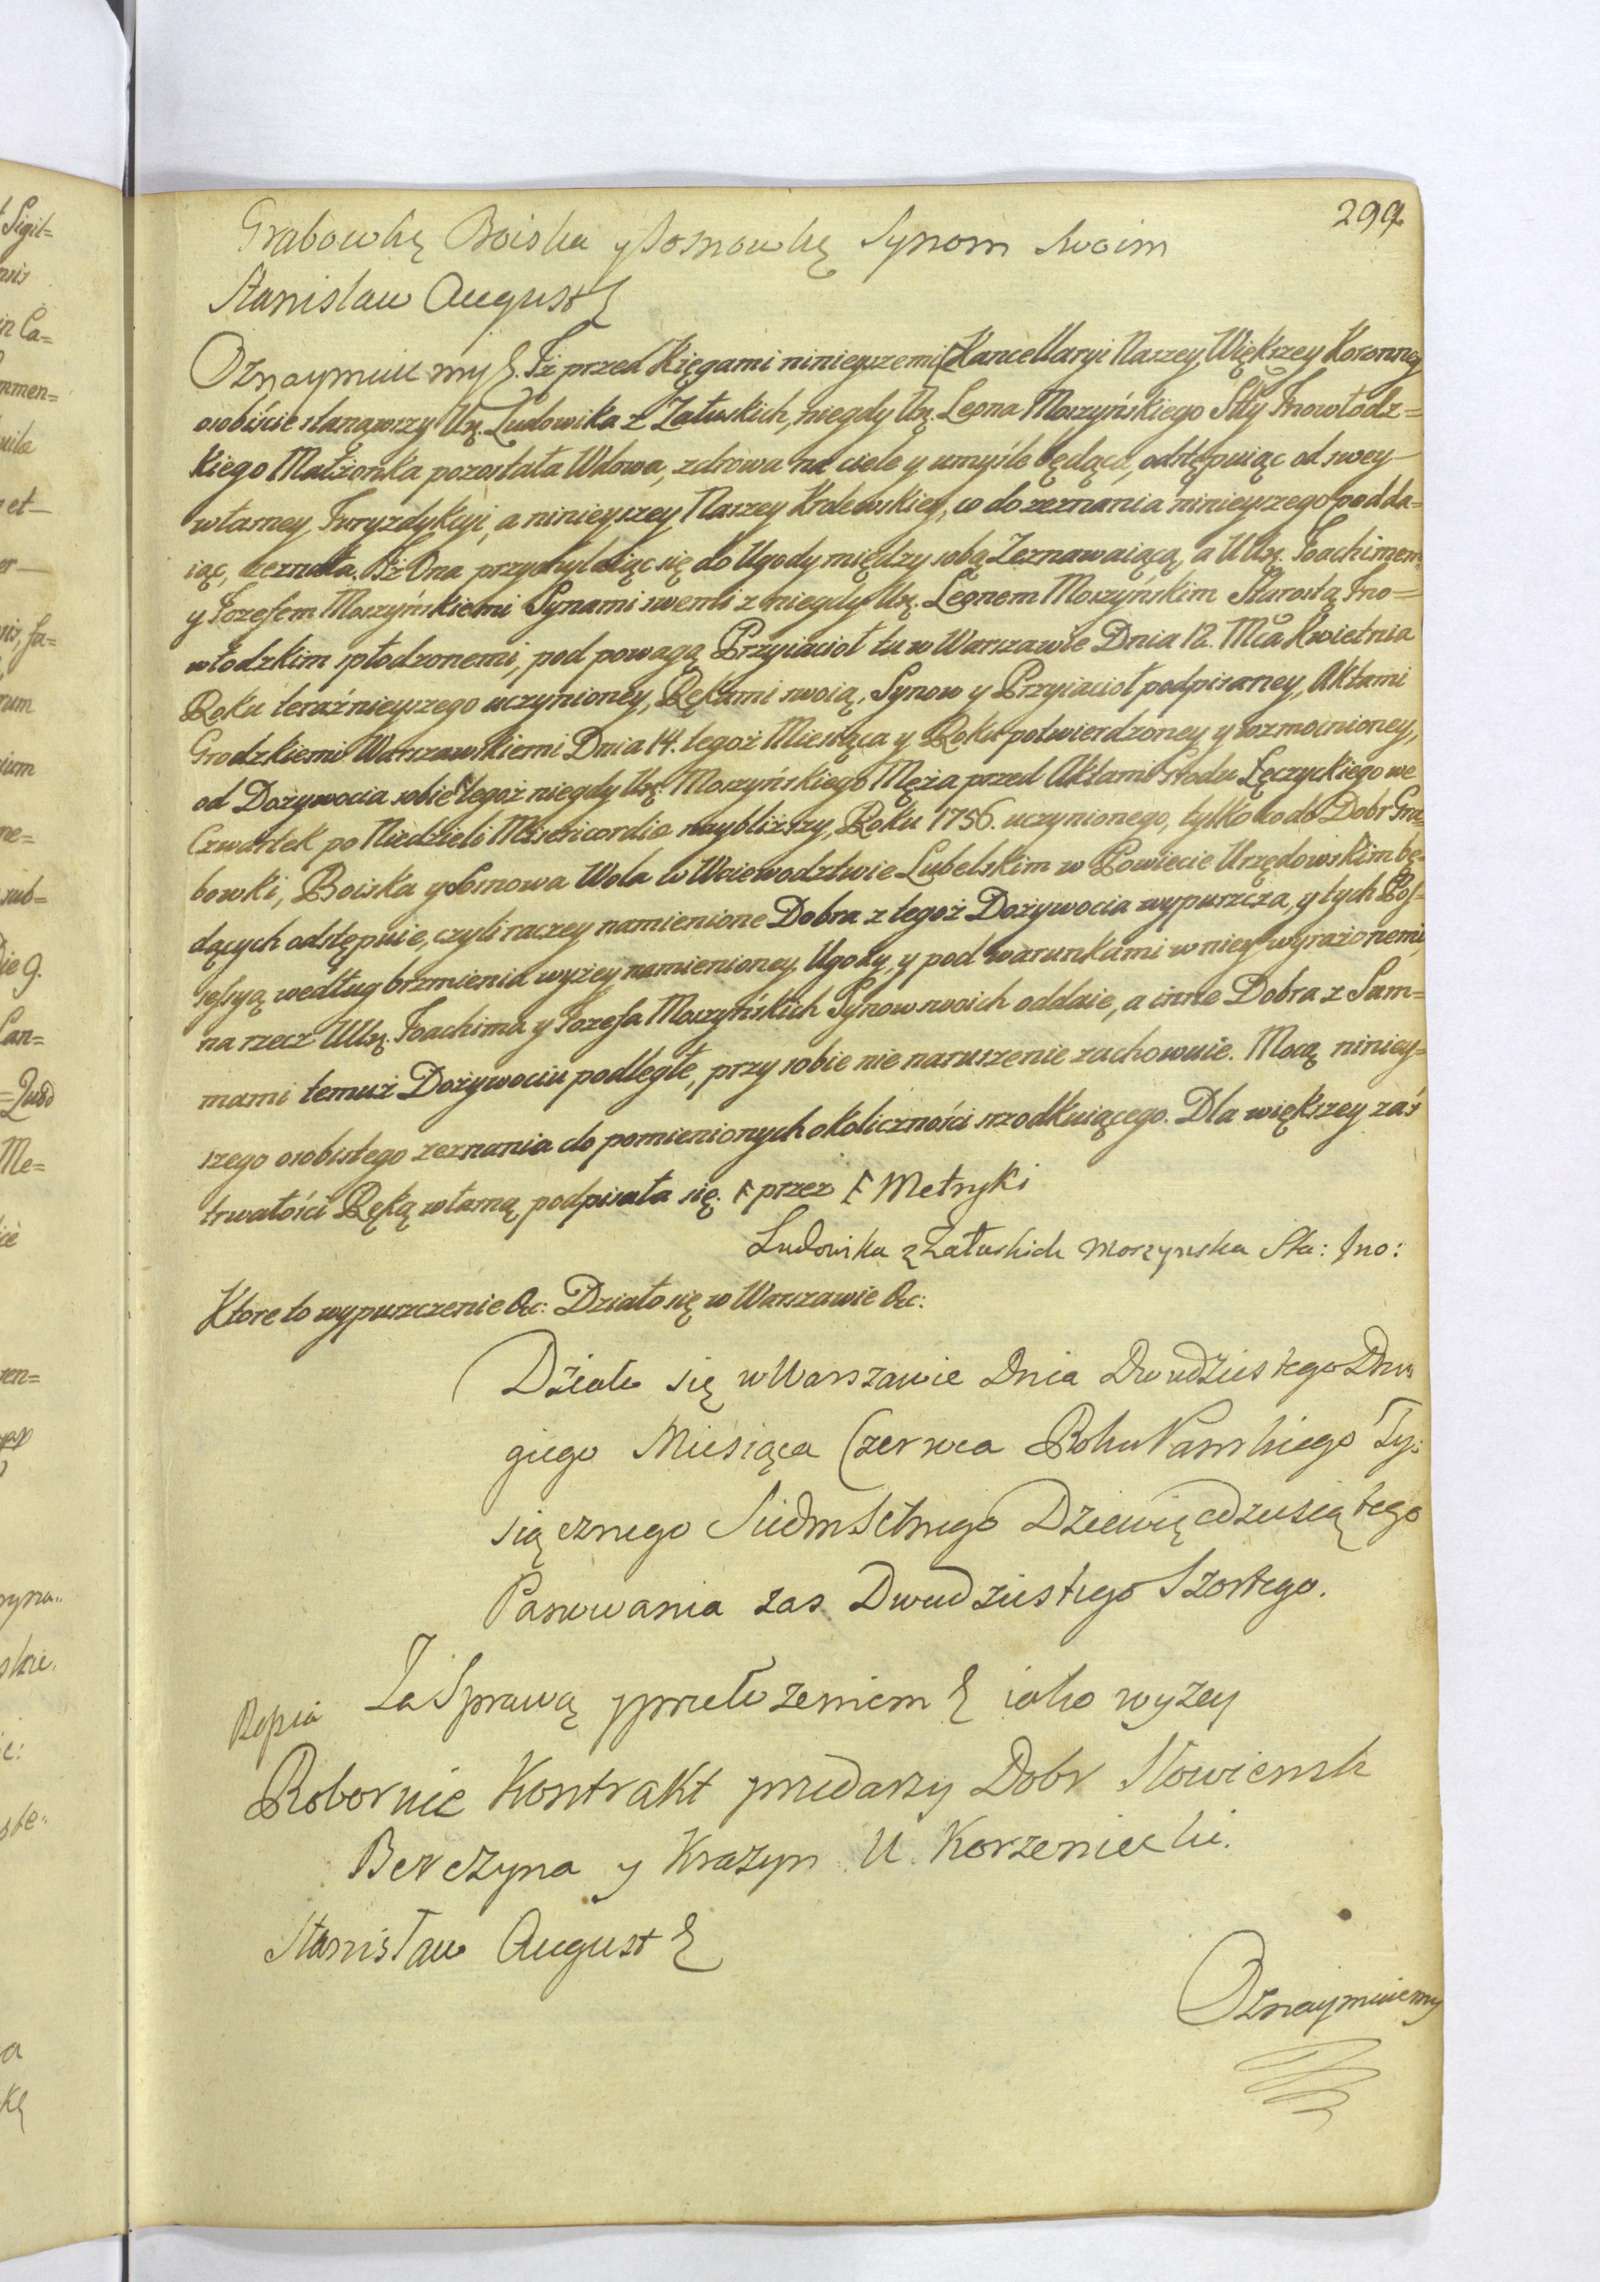 299
Grabowkę Boiska y Sosnowkę Synom Swoim
Stanislaw August &
Oznaymuiemy &. Iż przed Xięgami ninieyszemi Kancellaryi Naszey Większey Koronney
osobiście stanąwszy Ur. Ludowika z Załuskich, niegdy Ur. Leona Moszyńskiego Stty Inowłodz=
kiego Małżonka pozostała Wdowa, zdrowa na ciele y umyśle będąca, odstępuiąc od swey
własney Juryzdykcyi, a ninieyszey Naszey Krolewskiey, co do zeznania ninieyszego podda=
iąc, zeznała. Iż Ona przychylaiąc się do Ugody między sobą Zeznawaiącą, a UUr. Joachimem
y Jozefem Moszyńskiemi Synami swemi z niegdy Ur. Leonem Moszyńskim Starostą Ino=
włodzkim spłodzonemi, pod powagą Przyiacioł tu w Warszawie Dnia 12. Mca Kwietnia
Roku teraźnieyszego uczynioney, Rękami swoią, Synow y Przyiacioł podpisaney, Aktami
Grodzkiemi Warszawskiemi Dnia 14. tegoż Miesiąca y Roku potwierdzoney y rozmocnioney,
od Dożywocia sobie tegoż niegdy Ur. Moszyńskiego Męża przed Aktami Grodu Łęczyckiego we
Czwartek po Niedzieli Misericordia naybliższy, Roku 1756. uczynionego, tylko co do Dobr Gra=
bowki, Boiska y Sosnowa Wola w Woiewodztwie Lubelskim w Powiecie Urzędowskim bę=
dących odstępuie, czyli raczey namienione Dobra z tegoż Dożywocia wypuszcza, y tych Pos=
sessyą według brzmienia wyżey namienioney Ugody, y pod warunkami w niey wyrażonemi,
na rzecz UUr. Joachima y Jozefa Moszyńskich Synow swoich oddaie, a inne Dobra z Sum=
mami temuż Dożywociu podległe, przy sobie nie naruszenie zachowuie. Mocą nineiy=
szego osobistego zeznania do pomienionych okoliczności srzodkuiącego. Dla większey zaś
trwałości Ręką własną podpisała się. przez Metryki
Ludowika z Załuskich Moszynska Sta: Ino:
Ktore to wypuszczenie &c: Działo się w Warszawie &c:
Działo się w Warszawie Dnia Dwudziestego Dru
giego Miesiąca Czerwca Roku Pańskiego Ty:
siącznego Siedmsetnego Dziewięcdziesiątego
Panowania zas Dwudziestego Szostego.
Za Sprawą y przełozeniem & iako wyzey
Roboruie Kontrakt przedazy Dobr Słowiensk
Berczyna y Krazyn U. Korzeniecki.
Stanisław August &
Oznaymuiemy